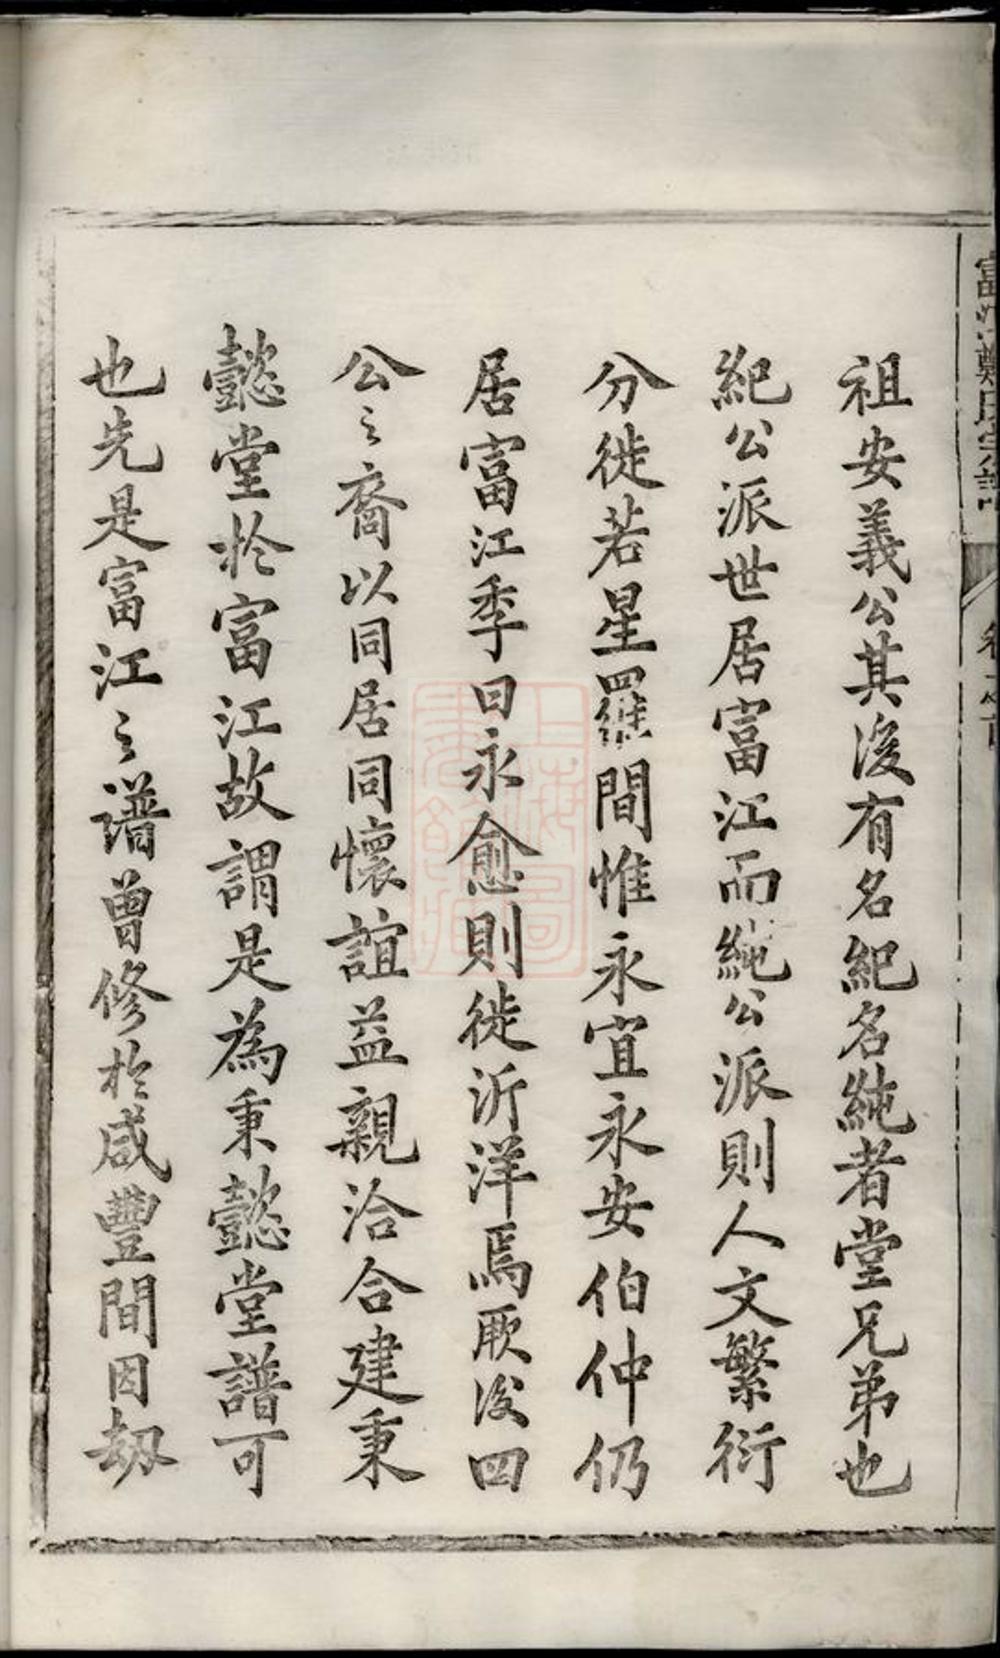 富江鄭氏宗譜
卷之首
祖安義公其後有名紀名純者堂兄弟也
紀公派世居富江而純公派則人文繁衍
分徙若星羅間惟永宜永安伯仲仍
居富江季曰永愈則徙沂洋焉厥後四
公之裔以同居同懷誼益親洽合建秉
懿堂於富江故謂是為秉懿堂譜可
也先是富江之譜曾修於咸豐間因劫